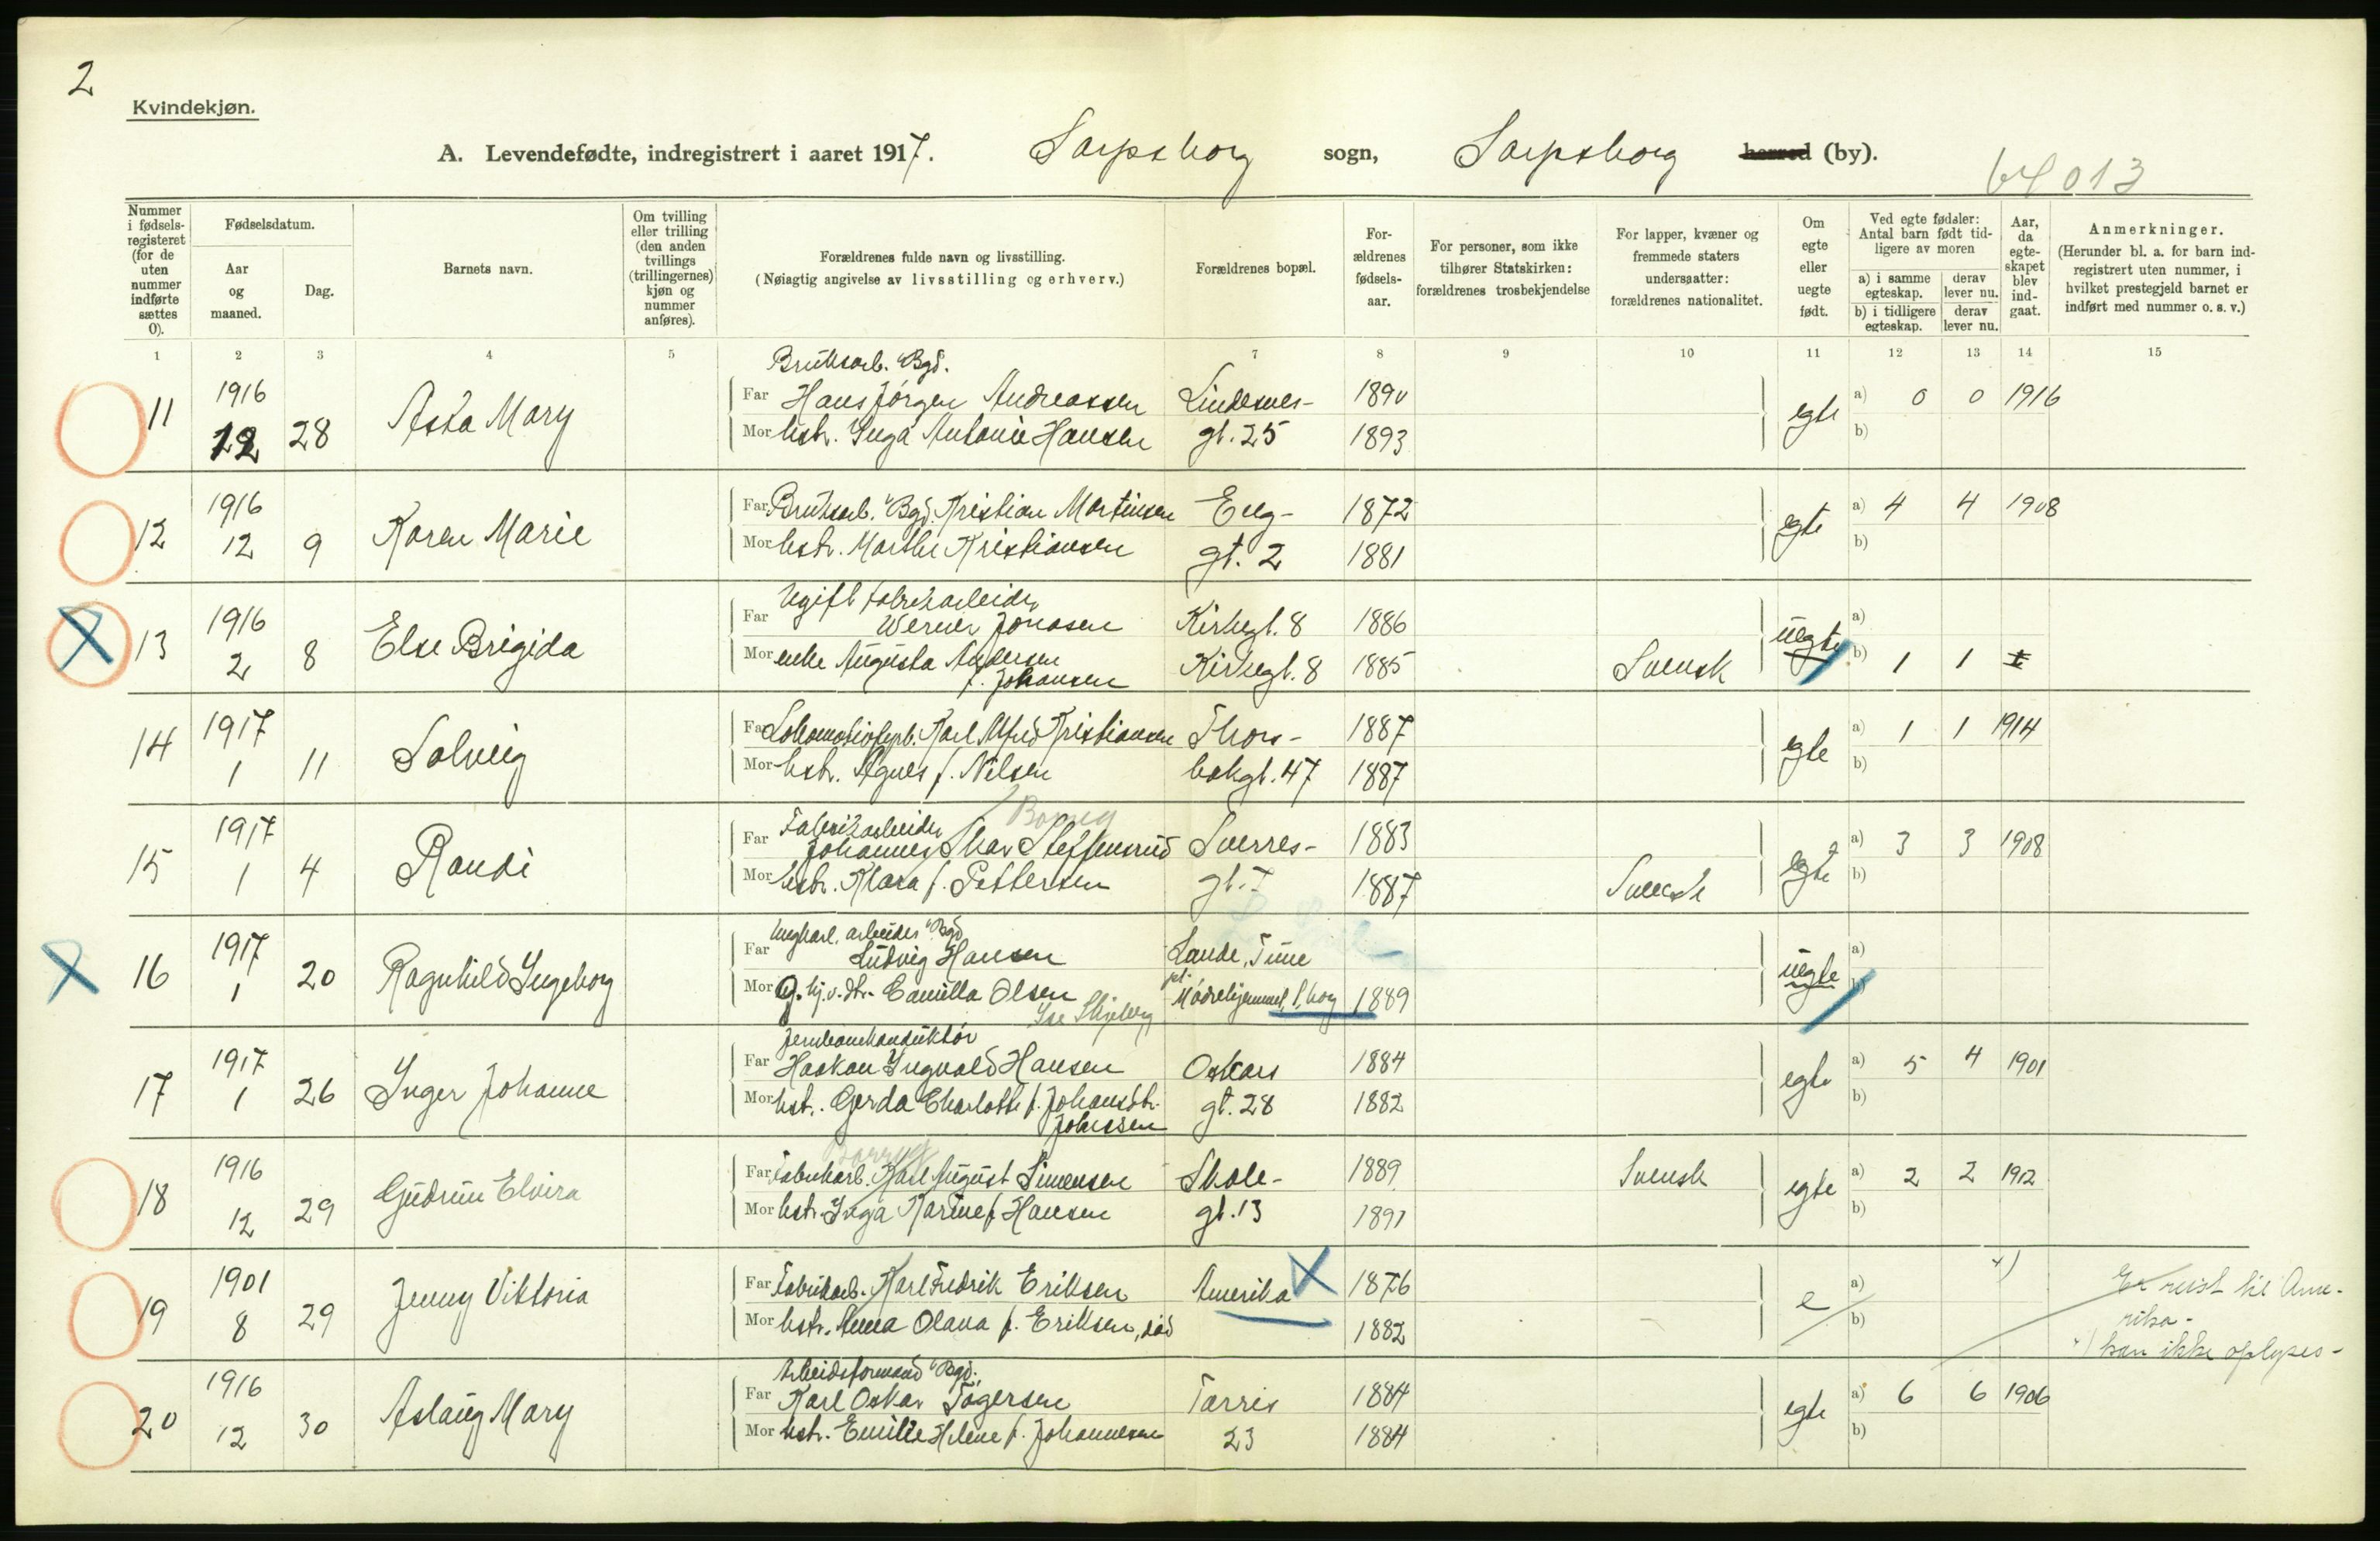 2
Kvindekjøn.
A. Levendefødte, indregistrert i aaret 1917. Sarpsborg sogn, Sarpsborg herred (by).
64013
Nummer i fødselsregisteret (for de uten nummer indførte sættes 0).
Fødselsdatum.
Aar og maaned.
Dag.
Barnets navn.
Om tvilling eller trilling (den anden tvillings (trillingernes) kjøn og nummer anføres).
Forældrenes fulde navn og livsstilling.
(Nøiagtig angivelse av livsstilling og erhverv.)
Forældrenes bopæl.
Forældrenes fødselsaar.
For personer, som ikke tilhører Statskirken: forældrenes trosbekjendelse
For lapper, kvæner og fremmede staters undersaatter: forældrenes nationalitet.
Om egte eller uegte født.
Ved egte fødsler: Antal barn født tidligere av moren
a) i samme egteskap. derav lever nu.
b) i tidligere egteskap. derav lever nu.
Aar, da egteskapet blev indgaat.
Anmerkninger.
(Herunder bl. a. for barn indregistrert uten nummer, i hvilket prestegjeld barnet er indført med nummer o. s. v.)
1 2 3 4 5 7 8 9 10 11 12 13 14 15
Bruksarb. Bgd.
11 1916 Asta Mary Far Hans Jørgen Andreassen Lindesnes- 1890 egte a) 0 0 1916
12 28 Mor hstr. Inga Antonie Hansen gt. 25 1893 b)
12 1916 Karen Marie Far Bruksarb. Bgd. Kristian Martinsen Eeg- 1872 egte a) 4 4 1908
12 9 Mor hstr. Marthe Kristiansen gt. 2 1881 b)
Ugift fabrikarbeider
13 1916 Else Brigida Far Werner Jonasen Kirkegt. 8 1886 uegte a)
2 8 Mor enke Augusta Andersen Kirkegt. 8 1885 Svensk b) 1 1
f. Johansen
14 1917 Solveig Far Lokomotivfyrb. Karl Alfred Kristiansen Thors- 1887 egte a) 1 1 1914
1 11 Mor hstr. Agnes f. Nilsen bakgt. 47 1887 b)
Fabrikarbeider
15 1917 Randi Far Johannes Skar Steffensrud Sverres- 1883 egte a) 3 3 1908
1 4 Mor hstr. Klara f. Pettersen gt. 7 1887 Svensk b)
arbeider Bgd
16 1917 Ragnhild Ingeborg Far Ludvig Hansen Lande, Tune uegte a)
1 20 Mor hj. v. dtr. Camilla Olsen Mødrehjemmet, S.borg 1889 b)
Skjeberg
Jernbanekonduktør
17 1917 Inger Johanne Far Haakon Ingvald Hansen Oskars 1884 egte a) 5 4 1901
1 26 Mor hst. Gerda Charlotte f. Johansdtr. gt. 28 1882 b)
Johnssen
18 1916 Gudrun Elvira Far Fabrikarb. Karl August Simensen Skole- 1889 Svensk egte a) 2 2 1912
12 29 Mor hstr. Inga Karine f. Hansen gt. 13 1891 b)
19 1901 Jenny Viktoria Far Fabrikarb. Karl Fredrik Eriksen Amerika 1876 e a) x) Er reist til Ame-
8 29 Mor hstr. Anna Olava f. Eriksen, død 1882 b) rika -
x) kan ikke oplyses -
Arbeidsformand Bgd.
20 1916 Aslaug Mary Far Karl Oskar Tøgersen Tarris 1884 egte a) 6 6 1906
12 30 Mor hstr. Emilie Helene f. Johannesen 23 1884 b)